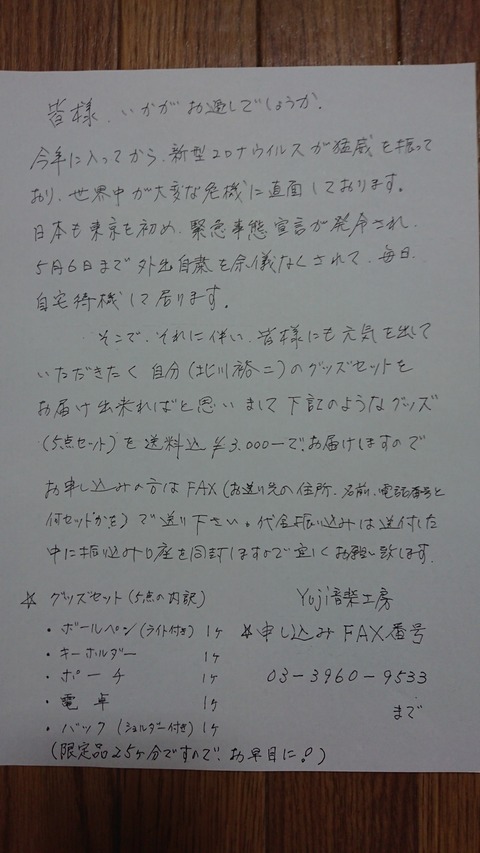 皆様、いかがお過しでしょうか。
今年に入ってから、新型コロナウイルスが猛威を振って
おり、世界中が大変な危機に直面しております。
日本も東京を初め、緊急事態宣言が発令され、
5月6日まで外出自粛を余儀なくされて、毎日、
自宅待機して居ります。
そこで、それに伴い、皆様にも元気を出して
いただきたく自分(北川裕二)のグッズセットを
お届け出来ればと思いまして下記のようなグッズ
(5点セット)を送料込¥3,000ーで、お届けしますので
お申し込みの方はFAX(お送り先の住所、名前、電話番号と
何セットかを)で送り下さい。代金振り込みは送付した
中に振り込み口座を同封しますので宜しくお願い致します。
☆ グッズセット(5点の内訳)
・ボールペン(ライト付き) 1ヶ
・キーホルダー 1ヶ
・ポーチ 1ヶ
・電卓 1ヶ
・バック(ショルダー付き) 1ヶ
(限定品25ヶ分ですので、お早目に!)
Yuji音楽工房
☆申し込みFAX番号
03-3960-9533
まで